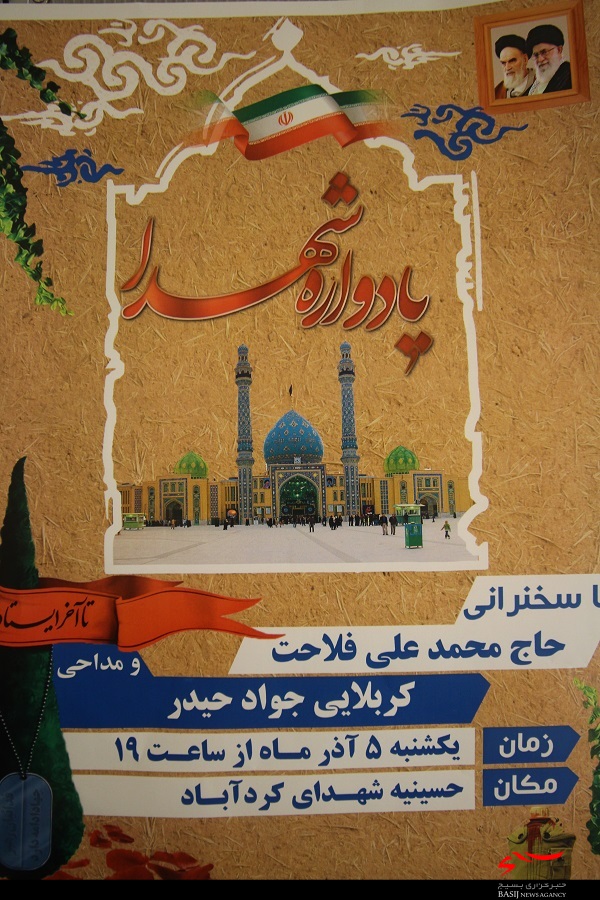 یادواره شهدا
با سخنرانی
حاج محمد علی فلاحت
تا آخر ایستاده
و مداحی
کربلایی جواد حیدر
زمان
یکشنبه ۵ آذر ماه از ساعت ۱۹
مکان
حسینیه شهدای کردآباد
خبرگزاری بسیج
BASIJ NEWS AGANCY